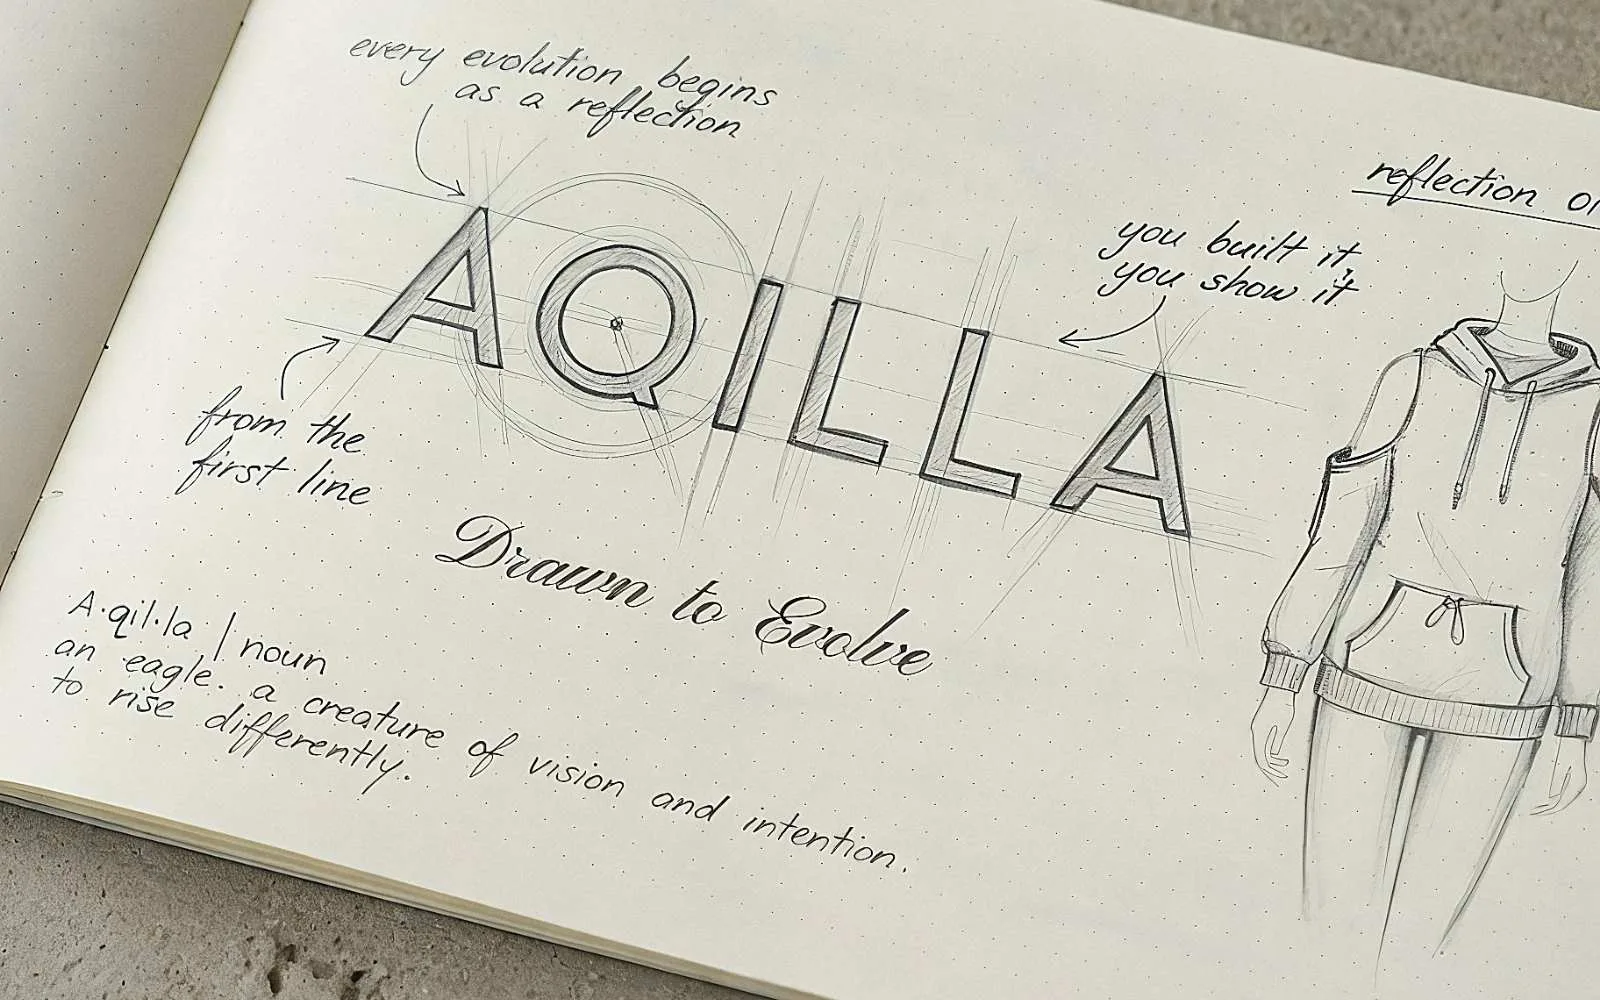 every evolution begins
as a reflection
reflection
you built it,
you show it
AQILLA
from the
first line
Drawn to Evolve
A·qil·la | noun
an eagle. a creature of vision and intention.
to rise differently.